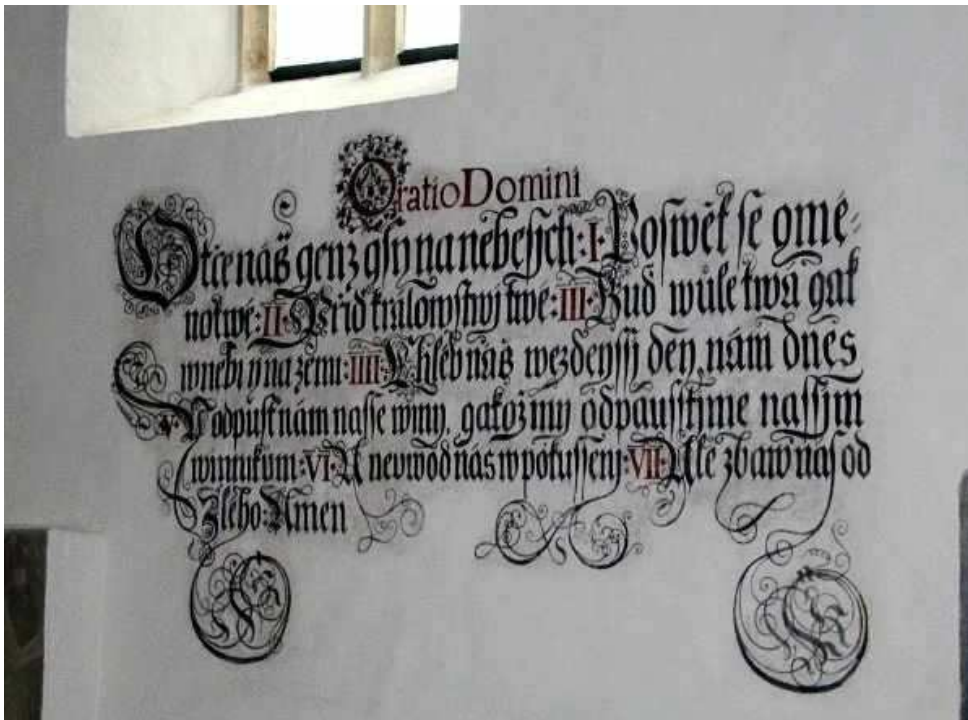 Oratio Domini
Otče náš genž gsy na nebesych: I. Poswěť se gmé-
no twé: II. Přiď kralowstwj twé: III. Buď wůle twá gak
w nebi y na zemi: IIII. Chléb náš wezdeyssij dey nám dnes
V. A odpusť nám nasse winy, gakož my odpausstjme nassjm
winnikům: VI. A neuwoď nás w pokussenj: VII. Ale zbaw nás od
Zlého: Amen